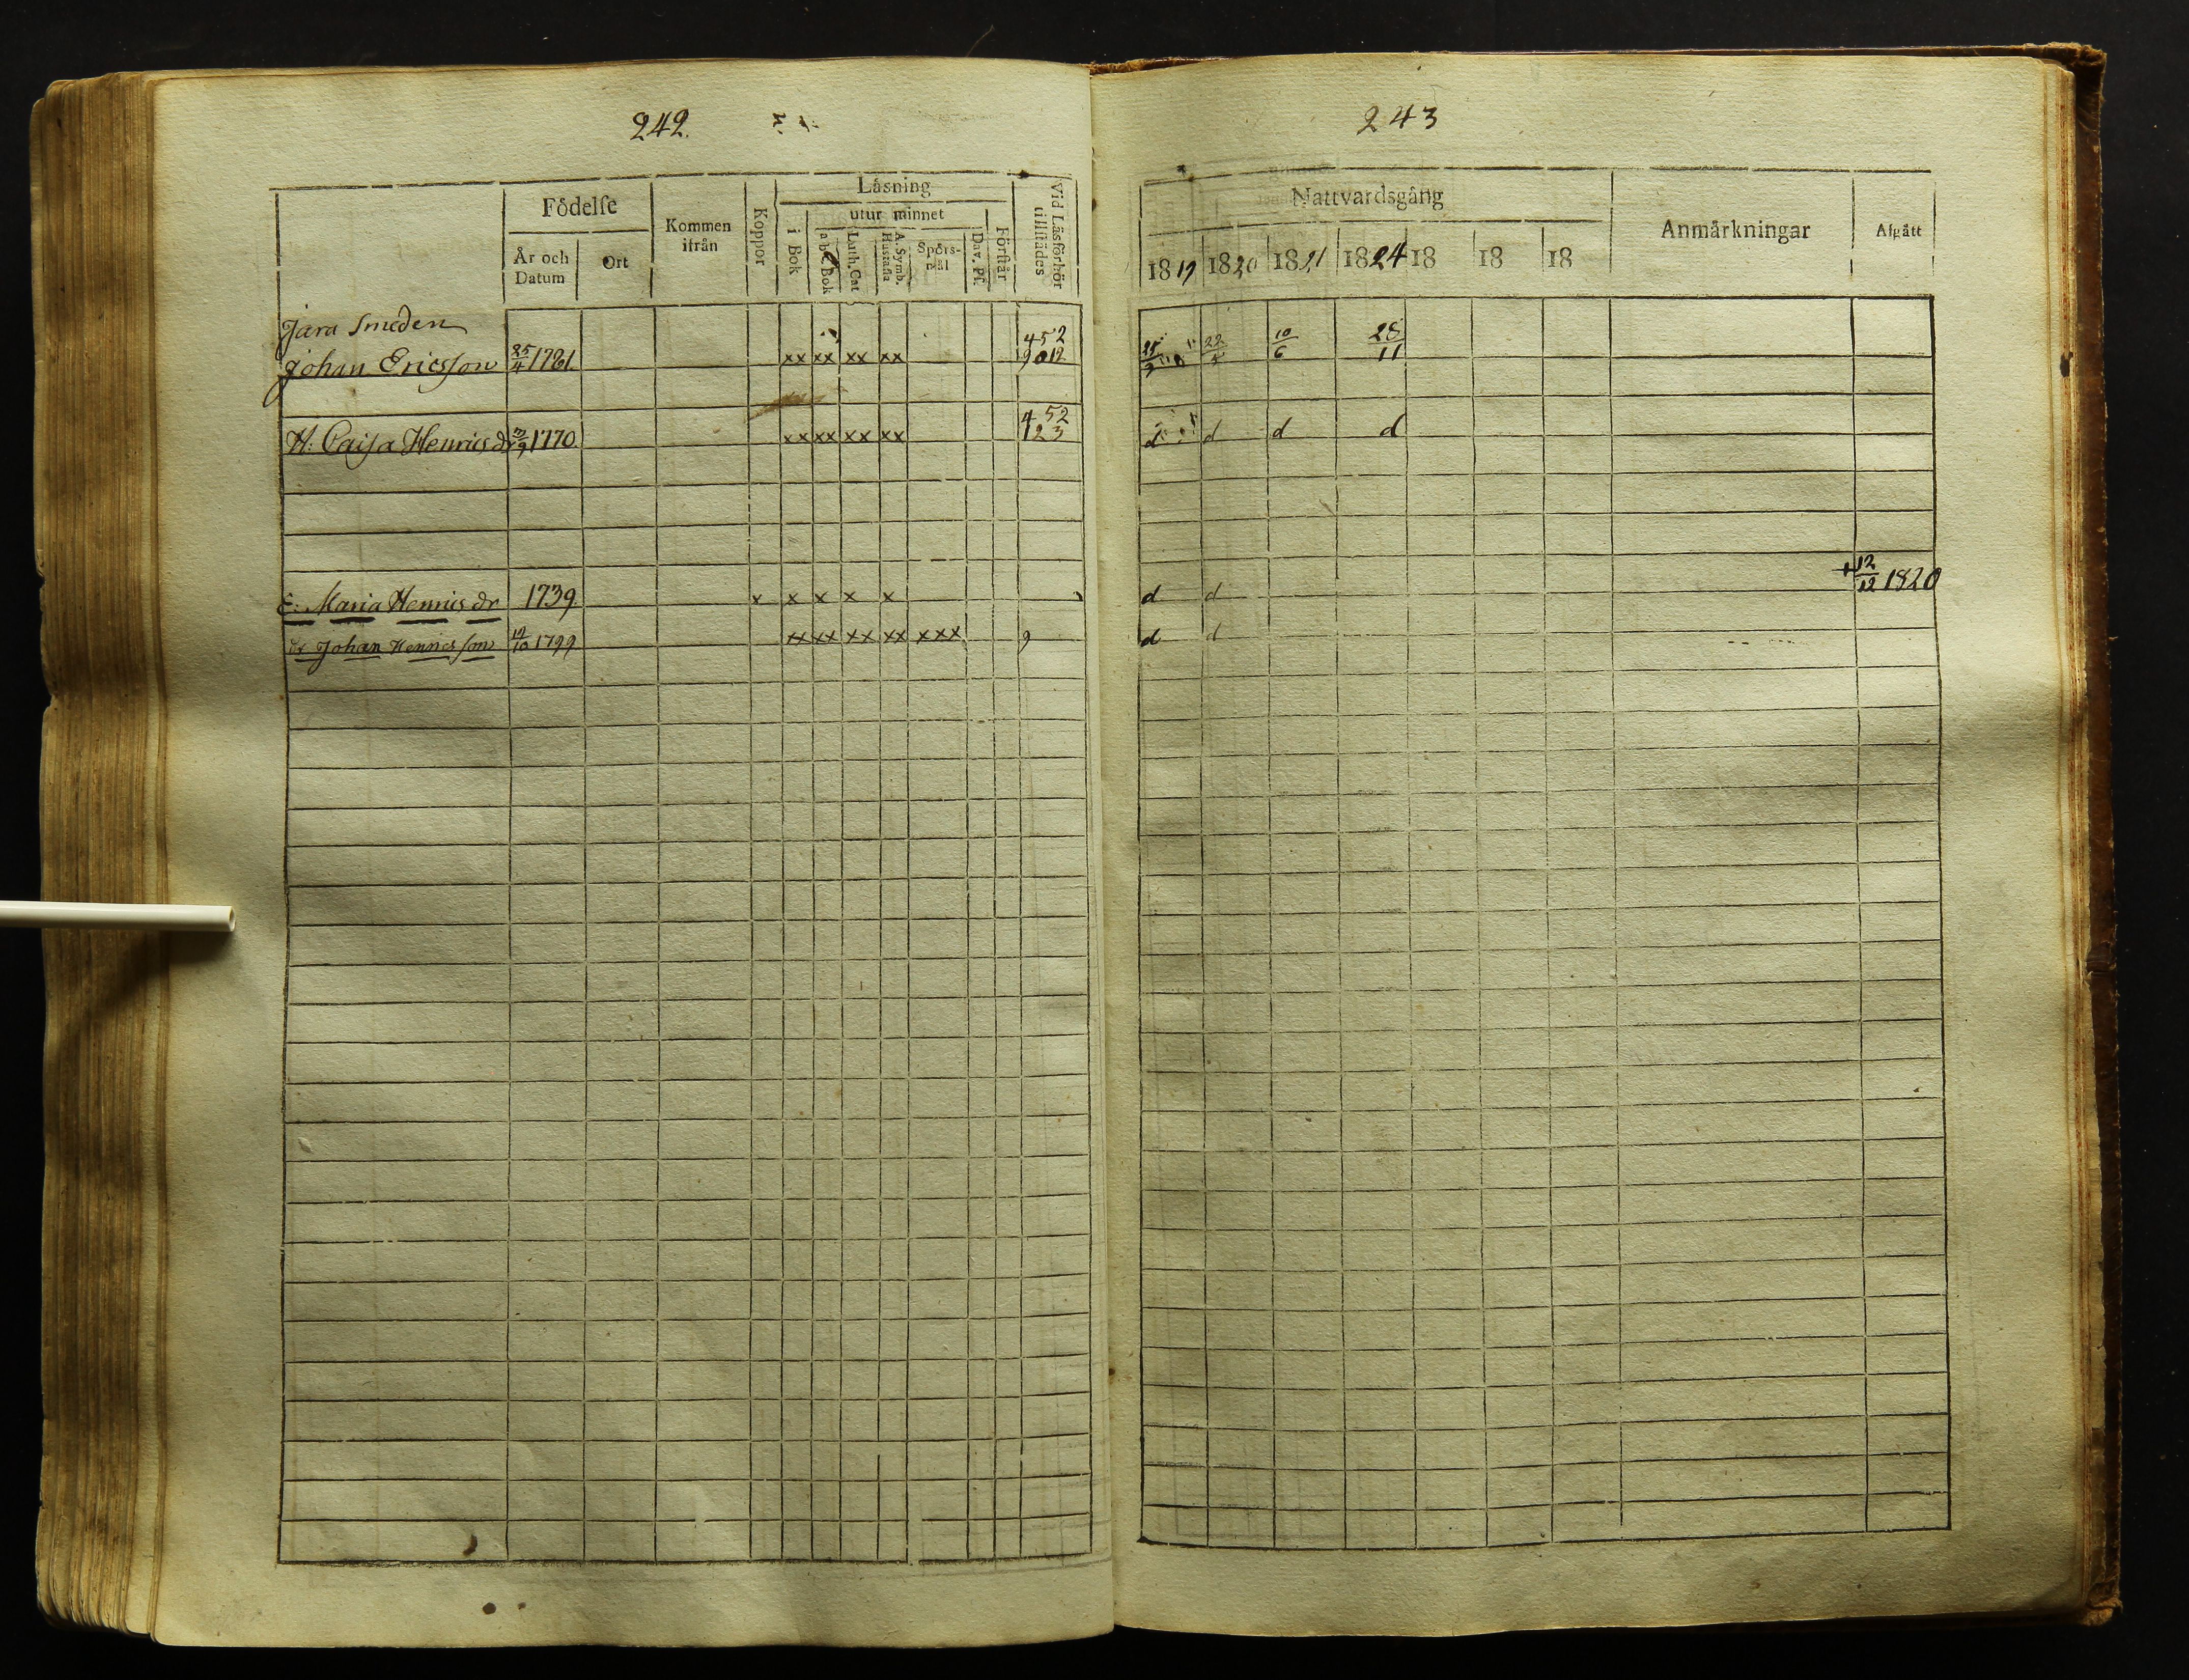 242.
Läsning
Födelse
utur minnet
Kommen ifrån
Koppor
i Bok
a b c Bok
Luth. Cat
A. Symb. Hustafla
Spörsmål
Dav. Ps.
Förstår
Vid Läsförhör tillstädes
År och Datum
Ort
Jara Smeden
Johan Ericsson 25/4 1761. xx xx xx xx
4 5 2
9 0 12
H: Caisa Henrics dr 1770. xx xx xx xx
4 5 2
1 2 3
E: Maria Henrics dr 1739 x x x x x
dr Johan Henricsson 19/10 1799 xx xx xx xx xxx 9
243
Nattvardsgång
Anmärkningar
Afgått
1819 1820 1821 1824 18 18 18
22/4 10/6 28/11
d d d d
d d + 12/12 1820
d d